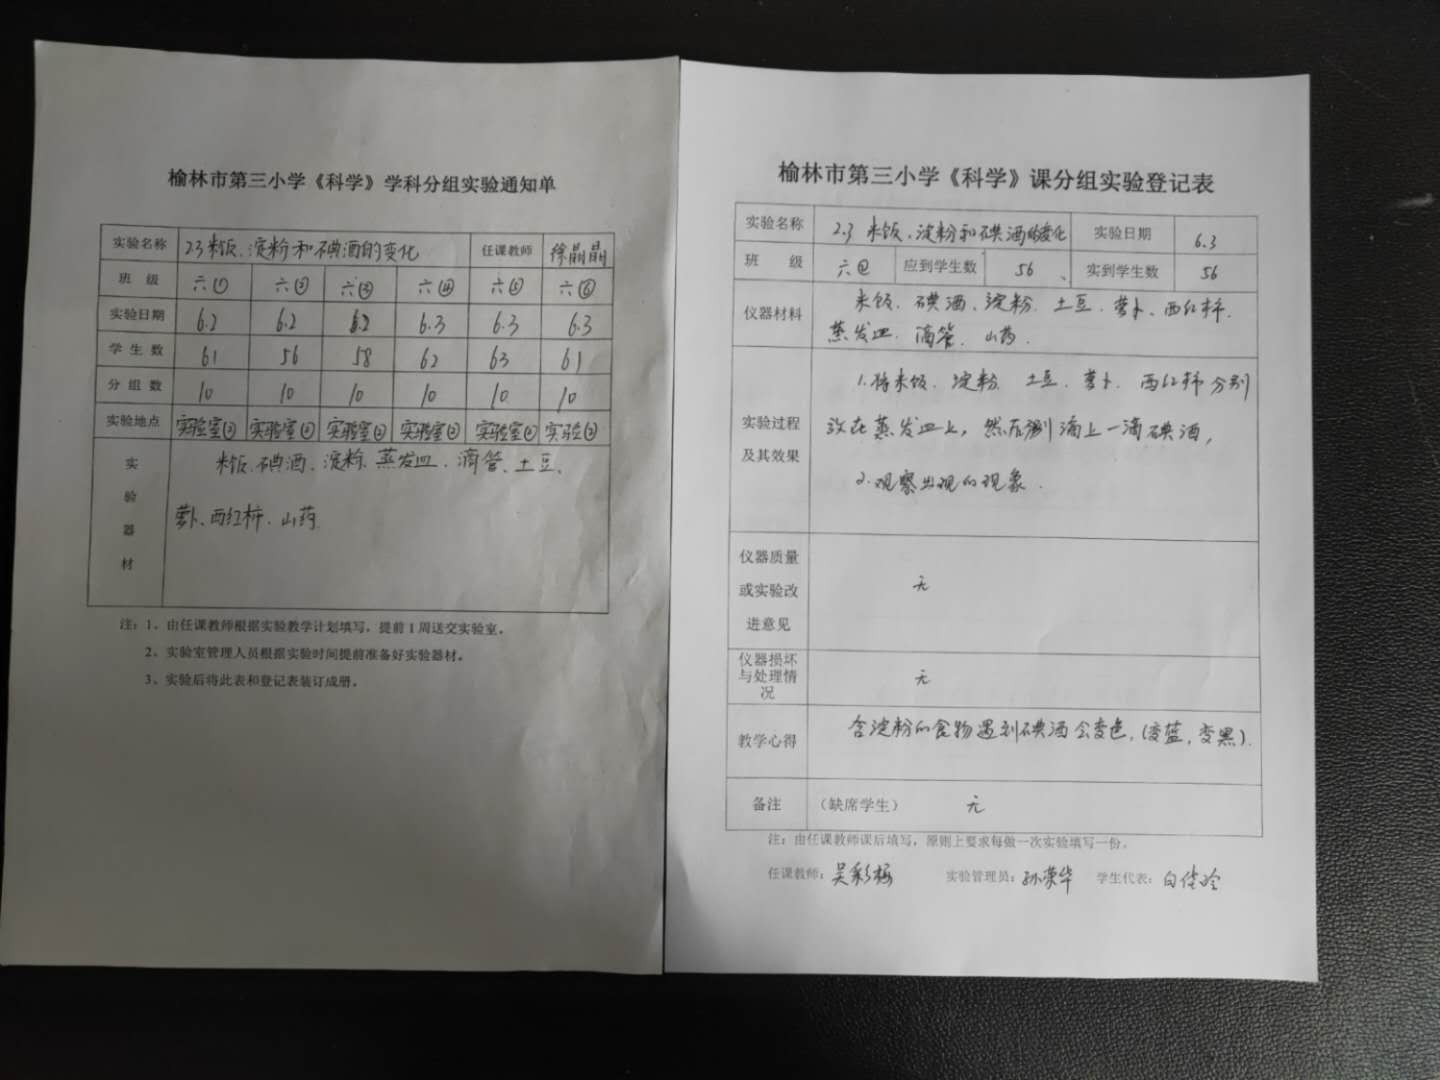 榆林市第三小学《科学》学科分组实验通知单
实验名称 2.3米饭、淀粉和碘酒的变化 任课教师 徐晶晶
班 级 六① 六② 六③ 六④ 六⑤ 六⑥
实验日期 6.2 6.2 6.2 6.3 6.3 6.3
学 生 数 61 56 58 62 63 61
分 组 数 10 10 10 10 10 10
实验地点 实验室② 实验室② 实验室② 实验室② 实验室② 实验②
实验器材 米饭、碘酒、淀粉、蒸发皿、滴管、土豆、
萝卜、西红柿、山药
注：1、由任课教师根据实验教学计划填写，提前1周送交实验室。
2、实验室管理人员根据实验时间提前准备好实验器材。
3、实验后将此表和登记表装订成册。
榆林市第三小学《科学》课分组实验登记表
实验名称 2.3 米饭、淀粉和碘酒的变化 实验日期 6.3
班 级 六② 应到学生数 56 实到学生数 56
仪器材料 米饭、碘酒、淀粉、土豆、萝卜、西红柿、
蒸发皿、滴管、山药
实验过程
及其效果
1.将米饭、淀粉、土豆、萝卜、西红柿分别
放在蒸发皿上，然后分别滴上一滴碘酒，
2.观察出现的现象.
仪器质量
或实验改
进意见
无
仪器损坏
与处理情
况
无
教学心得 含淀粉的食物遇到碘酒会变色，(变蓝，变黑).
备注 （缺席学生） 无
注：由任课教师课后填写，原则上要求每做一次实验填写一份。
任课教师：吴彩梅 实验管理员：孙荣华 学生代表：白佳玲